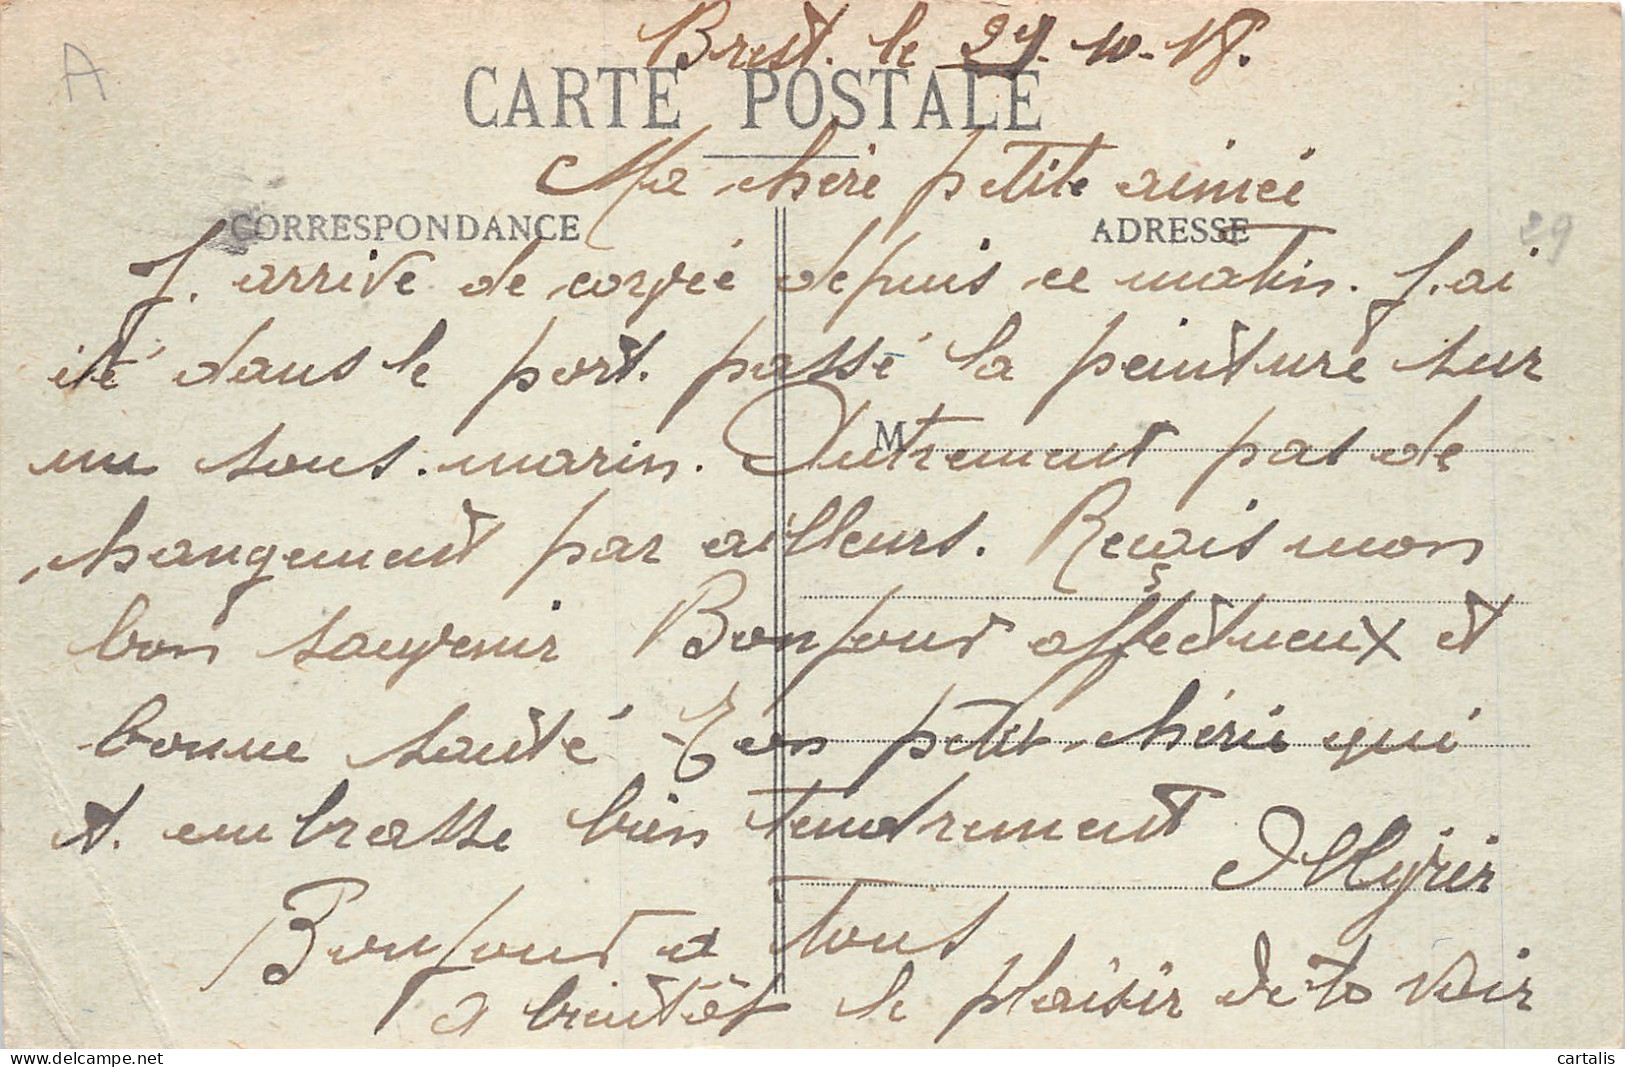 A
Brest. le 27. 10. 18.
CARTE POSTALE
Ma chère petite aimée
CORRESPONDANCE
ADRESSE
29
J. arrive de corvée depuis ce matin. J. ai
été dans le port. passé la peinture sur
un sous. marin. Autrement pas de
M
changement par ailleurs. Reçois mon
bon souvenir Bonjour affectueux et
bonne santé Ton petit chéri qui
t. embrasse bien tendrement
Bonjour a tous
a bientôt le plaisir de te voir
cartalis